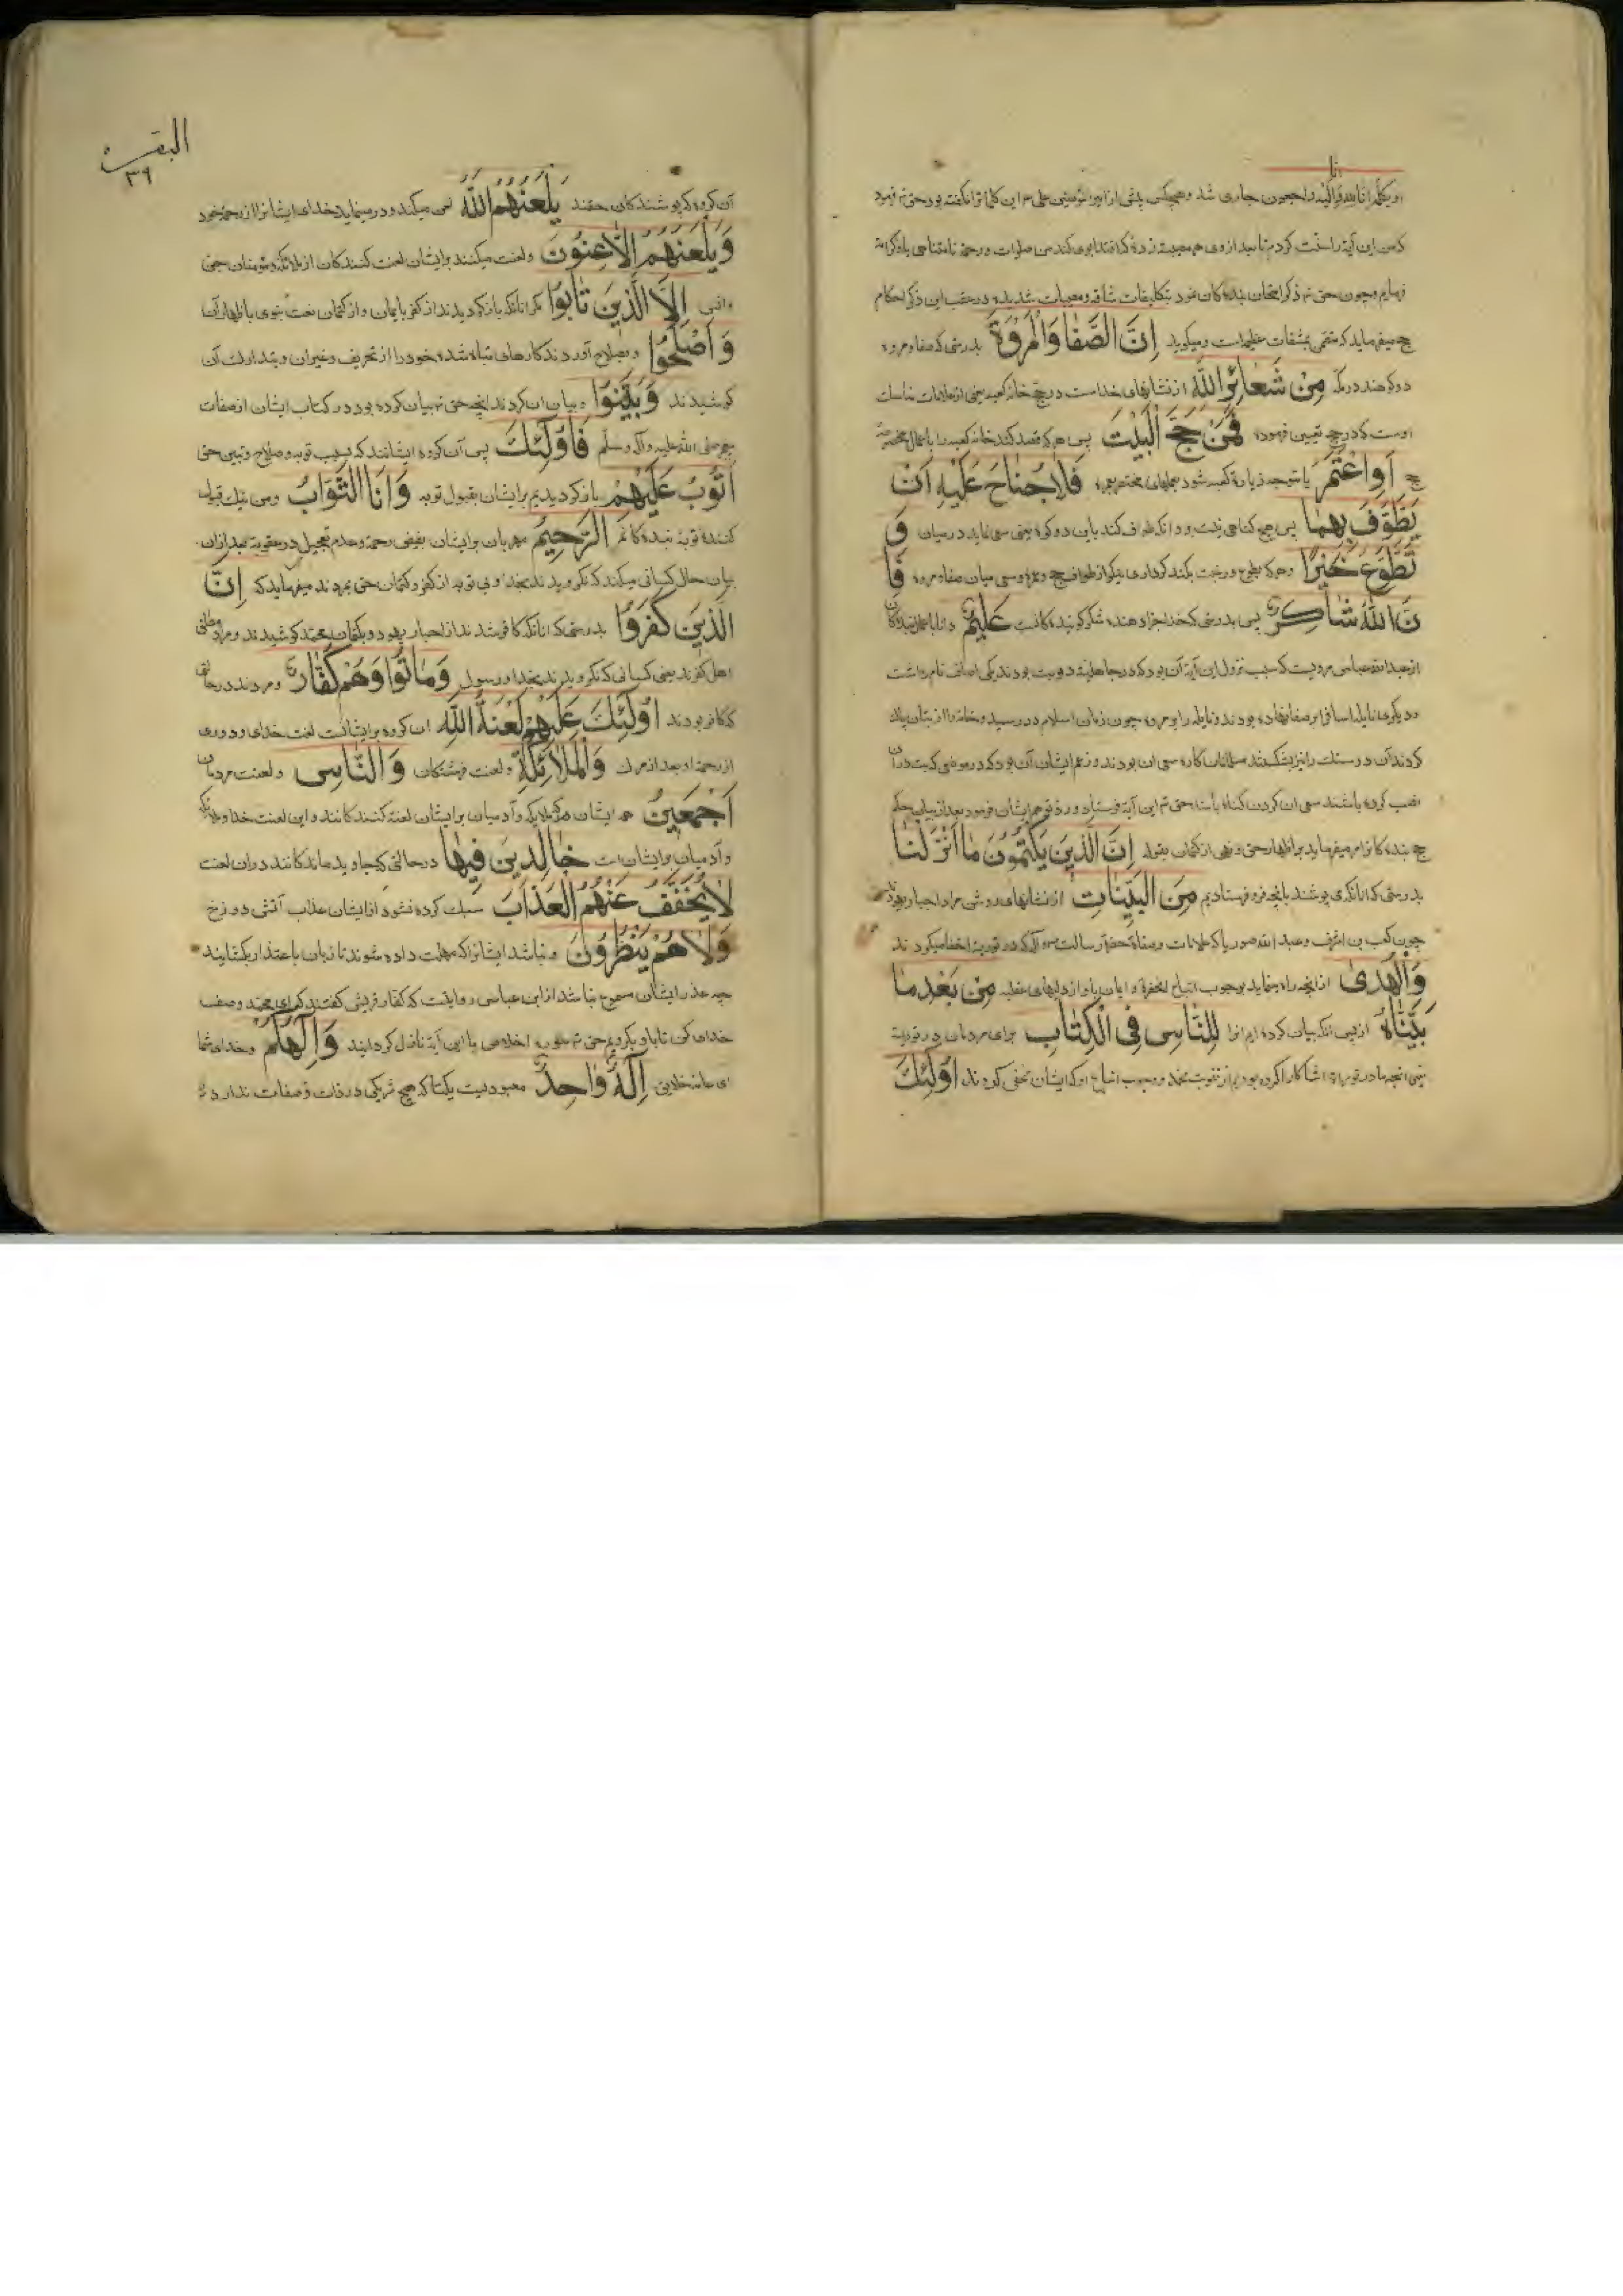 انا
او بکلمه انا لله وانا الیه راجعون جاری شد وهیچکس پیش از امیر المؤمنین علی این کلمات را نگفته بود حق تع فرمود
که من این آیة را سنت کردم تا بعد از وی هر مصیبت زدۀ که اقتدا بوی کند من صلوات ورحمة نامتناهی
فرمایم وچون حق تع ذکر امتحان بندهکان خود بتکلیفات شاقه ومصیبات شدیده در عقب این ذکر احکام
حج میفرماید که متضمن مشقات عظیمه است ومیگوید اِنَّ الصَّفٰا وَالْمَرْوَةَ بدرستی که صفا ومروه
دو کوهند در مکه مِنْ شَعٰائِرِ اللّٰهِ از نشانهای خداست در حج خانه کعبه یعنی از علامات مناسات
اوست که در حج تعیین فرموده فَمَنْ حَجَّ الْبَیْتَ پس هر که قصد کند خانه کعبه را باعمال مخصوصه
حج اَوِاعْتَمَرَ یا متوجه زیارة کعبه شود بعملهای مختص بعمره فَلاٰ جُنٰاحَ عَلَیْهِ اَنْ
یَطَّوَّفَ بِهِمٰا پس هیچ کناهی نیست برو در انکه طواف کند باین دو کوه یعنی سعی نماید در میان وَ
تَطَوَّعَ خَیْرًا وهر که بطوع ورغبت بکند کرداری نیکو از طواف حج وعمره وسعی میان صفا ومروه فَاِ
نَّ اللّٰهَ شٰاکِرٌ پس بدرستی که خدا جزا دهنده شکر کویندهکانست عَلِیْمٌ دانا باعمال بندهکان
از عبد الله عباس مرویست که سبب نزول این آیة آن بود که در جاهلیة دو بت بودند یکی اساف نام داشت
ودیگری نایله اساف را بر صفا نهاده بودند ونایله را بر مروه چون زمان اسلام در رسید وخانه را از بتان پاک
کردند آن دو سنک را نیز بشکستند مسلمانان کاره سعی آن بودند وزعم ایشان آن بود که در موضعی که بت در آن
نصب کرده باشند سعی ان کردن کناه باشد حق تع این آیة فرستاد ورد توهم ایشان فرمود بعد از بیان حکم
حج بندهکانرا امر میفرماید بر اظهار حق ونهی از کتمان بقوله اِنَّ الَّذینَ یَکْتُمُونَ مٰا اَنْزَلْنٰا
بدرستی که انانکه می پوشند بآنچه فرو فرستادیم مِنَ الْبَیِّنٰاتِ از نشانهای روشن مراد احبار یهودند
چون کعب بن اشرف وعبد الله صوریا که علامات وصفاة حضرة رسالت ص واله که در توریة اخفا میکردند
وَالْهُدیٰ از آنچه راه مینماید بوجوب اتباع انحضرة وایمان باو از دلیلهای عقلیه مِنْ بَعْدِ مٰا
بَیَّنّٰاهُ از پس انکه بیان کرده ایم انرا لِلنّٰاسِ فِی الْکِتٰابِ برای مردمان در توریة
یعنی انچه ما در توریة اشکارا کرده بودیم از نبوت محمد ووجوب اتباع او که ایشان مخفی کردند اُوْلٰئِکَ
البقره
۳۹
آن کروه که پوشندکان حقند یَلْعَنُهُمُ اللّٰهُ لعن میکند ودور مینماید خدای ایشانرا از رحمة خود
وَیَلْعَنُهُمُ اللّاٰعِنُونَ ولعنت میکنند بر ایشان لعنت کنندکان از ملائکه ومؤمنان جن
وانس اِلاَّ الَّذینَ تٰابُوا مکر انانکه بازکردیدند از کفر بایمان واز کتمان نعت نبوی باظهار آن
وَاَصْلَحُوا وبصلاح آوردند کارهای تباه شده خود را از تحریف وغیر آن وبتدارک آن
کوشیدند وَبَیَّنُوا وبیان ان کردند انچه حق تع بیان کرده بود در کتاب ایشان از صفات
محمد صلی الله علیه وآله وسلم فَاُوْلٰئِکَ پس آن کروه ایشانند که بسبب توبه وصلاح وتبیین حق
اَتُوبُ عَلَیْهِمْ بازکردیدیم بر ایشان بقبول توبه وَاَنَا التَّوّٰابُ ومن نیک قبول
کننده توبة بندهکانم الرَّحیمُ مهربان بر ایشان بفیض رحمة وعدم تعجیل در عقوبة بعد از ان
بیان حال کسانی میکند که نکرویدند بخدا وبی توبه از کفر وکتمان حق بمردند میفرماید که اِنَّ
الَّذینَ کَفَرُوا بدرستی که انانکه کافر شدند از احبار یهود وبکتمان محمد کوشیدند ومراد مطلق
اهل کفرند یعنی کسانی که نکرویدند بخدا ورسول وَمٰاتُوا وَهُمْ کُفّٰارٌ ومردند در حالتی
که کافر بودند اُوْلٰئِکَ عَلَیْهِمْ لَعْنَةُ اللّٰهِ ان کروه بر ایشانست لعنت خدای ودوری
از رحمة او بعد از مرک وَالْمَلاٰئِکَةِ ولعنت فرشتکان وَالنّٰاسِ ولعنت مردمان
اَجْمَعینَ همه ایشان هم ملایکه وآدمیان بر ایشان لعنة کنندکانند واین لعنت خدا وملائکه
وآدمیان بر ایشان است خٰالِدینَ فیهٰا در حالتی که جاوید ماندکانند در ان لعنت
لاٰ یُخَفَّفُ عَنْهُمُ الْعَذٰابُ سبک کرده نشود از ایشان عذاب آتش دوزخ
وَلاٰ هُمْ یُنْظَرُونَ ونباشد ایشانرا که مهلت داده شوند تا زبان باعتذار بکشایند
چه عذر ایشان مسموع نباشد از ابن عباس روایتست که کفار قریش کفتند که ای محمد وصف
خدای کن تا باو بکرویم حق تع سوره اخلاص با این آیة نازل کردانید وَاِلٰهُکُمْ وخدای شما
ای همه خلایق اِلٰهٌ وٰاحِدٌ معبودیست یکتا که هیچ شریکی در ذات وصفات ندارد